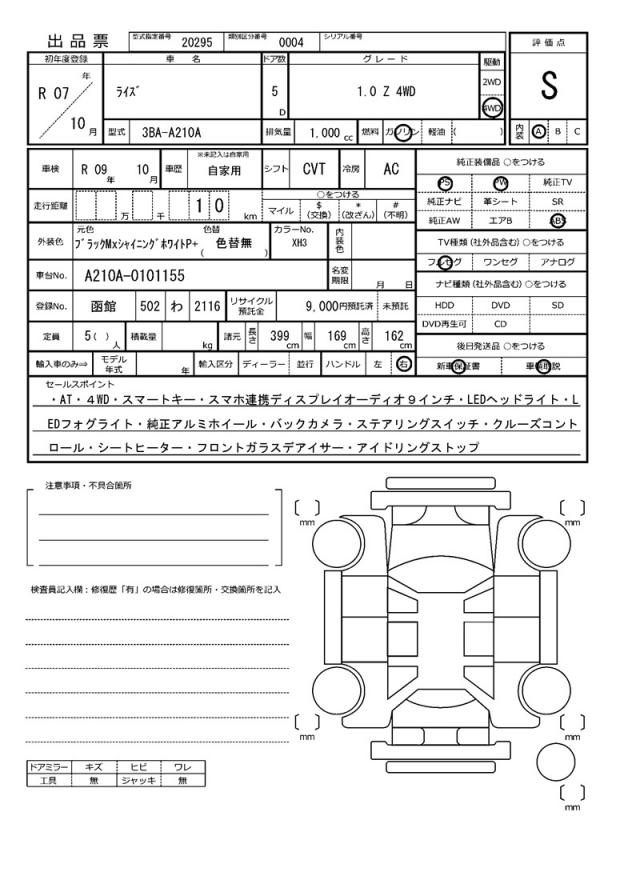 出品票 型式指定番号 20295 類別区分番号 0004 シリアル番号
評価点
初年度登録 車名 ドア数 グレード 駆動
R 07 年 10 月 ライズ 5 D 1.0 Z 4WD 2WD 4WD S
型式 3BA-A210A 排気量 1.000 cc 燃料 ガソリン 軽油 ( ) 内装 A B C
車検 R 09 年 10 月 車歴 ※未記入は自家用 自家用 シフト CVT 冷房 AC
純正装備品 ○をつける
PS PW 純正TV
純正ナビ 革シート SR
純正AW エアB ABS
走行距離 万 千 1 0 km ○をつける
マイル $ (交換) * (改ざん) # (不明)
外装色 元色 色替 カラーNo. 内装色
ブラックMxシャイニングホワイトP+ ( 色替無 ) XH3
TV種類 (社外品含む) ○をつける
フルセグ ワンセグ アナログ
車台No. A210A-0101155 名変期限 月 日
ナビ種類 (社外品含む) ○をつける
HDD DVD SD
DVD再生可 CD
登録No. 函館 502 わ 2116 リサイクル預託金 9,000円預託済 未預託
定員 5( ) 人 積載量 kg 諸元 長さ 399 cm 幅 169 cm 高さ 162 cm
後日発送品 ○をつける
新車保証書 車輌取説
輸入車のみ⇒ モデル年式 年 輸入区分 ディーラー 並行 ハンドル 左 右
セールスポイント
・AT・4WD・スマートキー・スマホ連携ディスプレイオーディオ9インチ・LEDヘッドライト・L
EDフォグライト・純正アルミホイール・バックカメラ・ステアリングスイッチ・クルーズコント
ロール・シートヒーター・フロントガラスデアイサー・アイドリングストップ
注意事項・不具合箇所
mm mm
検査員記入欄：修復歴「有」の場合は修復箇所・交換箇所を記入
mm mm
ドアミラー キズ ヒビ ワレ
工具 無 ジャッキ 無
mm